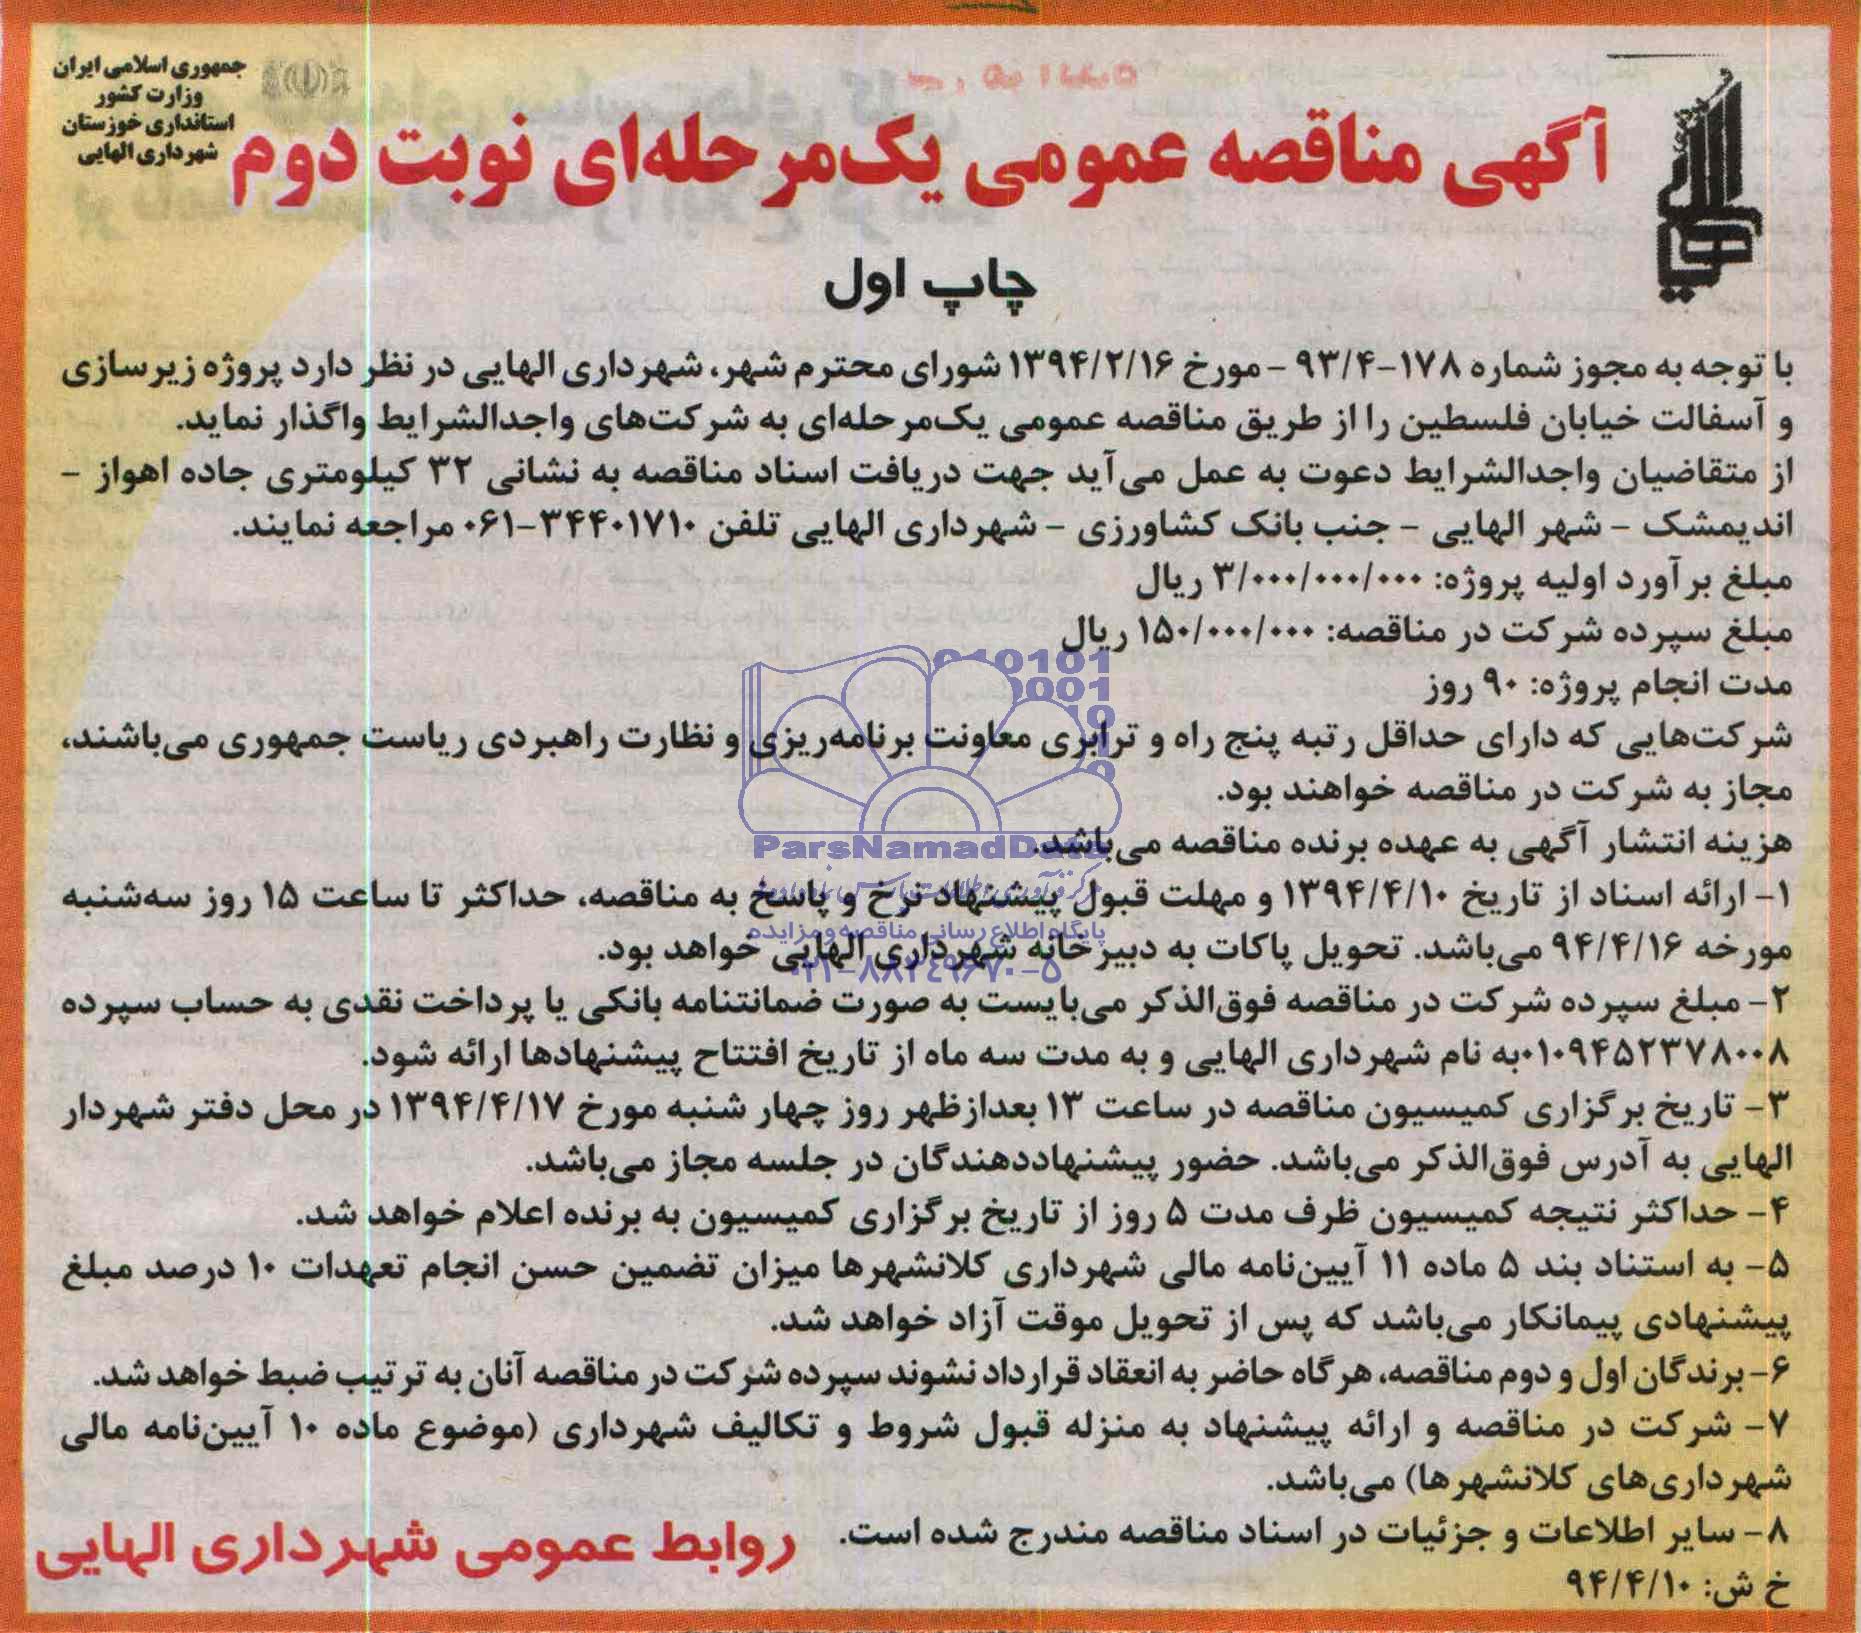 جمهوری اسلامی ایران
وزارت کشور
استانداری خوزستان
شهرداری الهایی
آگهی مناقصه عمومی یک‌مرحله‌ای نوبت دوم
چاپ اول
با توجه به مجوز شماره ۱۷۸-۹۳/۴ - مورخ ۱۳۹۴/۲/۱۶ شورای محترم شهر، شهرداری الهایی در نظر دارد پروژه زیرسازی
و آسفالت خیابان فلسطین را از طریق مناقصه عمومی یک‌مرحله‌ای به شرکت‌های واجدالشرایط واگذار نماید.
از متقاضیان واجدالشرایط دعوت به عمل می‌آید جهت دریافت اسناد مناقصه به نشانی ۳۲ کیلومتری جاده اهواز -
اندیمشک - شهر الهایی - جنب بانک کشاورزی - شهرداری الهایی تلفن ۳۴۴۰۱۷۱۰-۰۶۱ مراجعه نمایند.
مبلغ برآورد اولیه پروژه: ۳/۰۰۰/۰۰۰/۰۰۰ ریال
مبلغ سپرده شرکت در مناقصه: ۱۵۰/۰۰۰/۰۰۰ ریال
مدت انجام پروژه: ۹۰ روز
شرکت‌هایی که دارای حداقل رتبه پنج راه و ترابری معاونت برنامه‌ریزی و نظارت راهبردی ریاست جمهوری می‌باشند،
مجاز به شرکت در مناقصه خواهند بود.
هزینه انتشار آگهی به عهده برنده مناقصه می‌باشد.
ParsNamadData
۱- ارائه اسناد از تاریخ ۱۳۹۴/۴/۱۰ و مهلت قبول پیشنهاد نرخ و پاسخ به مناقصه، حداکثر تا ساعت ۱۵ روز سه‌شنبه
پایگاه اطلاع رسانی مناقصه و مزایده
مورخه ۹۴/۴/۱۶ می‌باشد. تحویل پاکات به دبیرخانه شهرداری الهایی خواهد بود.
۰۲۱-۸۸۳۴۹۶۷۰-۵
۲- مبلغ سپرده شرکت در مناقصه فوق‌الذکر می‌بایست به صورت ضمانتنامه بانکی یا پرداخت نقدی به حساب سپرده
۰۱۰۹۴۵۲۳۷۸۰۰۸به نام شهرداری الهایی و به مدت سه ماه از تاریخ افتتاح پیشنهادها ارائه شود.
۳- تاریخ برگزاری کمیسیون مناقصه در ساعت ۱۳ بعدازظهر روز چهار شنبه مورخ ۱۳۹۴/۴/۱۷ در محل دفتر شهردار
الهایی به آدرس فوق‌الذکر می‌باشد. حضور پیشنهاددهندگان در جلسه مجاز می‌باشد.
۴- حداکثر نتیجه کمیسیون ظرف مدت ۵ روز از تاریخ برگزاری کمیسیون به برنده اعلام خواهد شد.
۵- به استناد بند ۵ ماده ۱۱ آیین‌نامه مالی شهرداری کلانشهرها میزان تضمین حسن انجام تعهدات ۱۰ درصد مبلغ
پیشنهادی پیمانکار می‌باشد که پس از تحویل موقت آزاد خواهد شد.
۶- برندگان اول و دوم مناقصه، هرگاه حاضر به انعقاد قرارداد نشوند سپرده شرکت در مناقصه آنان به ترتیب ضبط خواهد شد.
۷- شرکت در مناقصه و ارائه پیشنهاد به منزله قبول شروط و تکالیف شهرداری (موضوع ماده ۱۰ آیین‌نامه مالی
شهرداری‌های کلانشهرها) می‌باشد.
۸- سایر اطلاعات و جزئیات در اسناد مناقصه مندرج شده است.
خ ش: ۹۴/۴/۱۰
روابط عمومی شهرداری الهایی